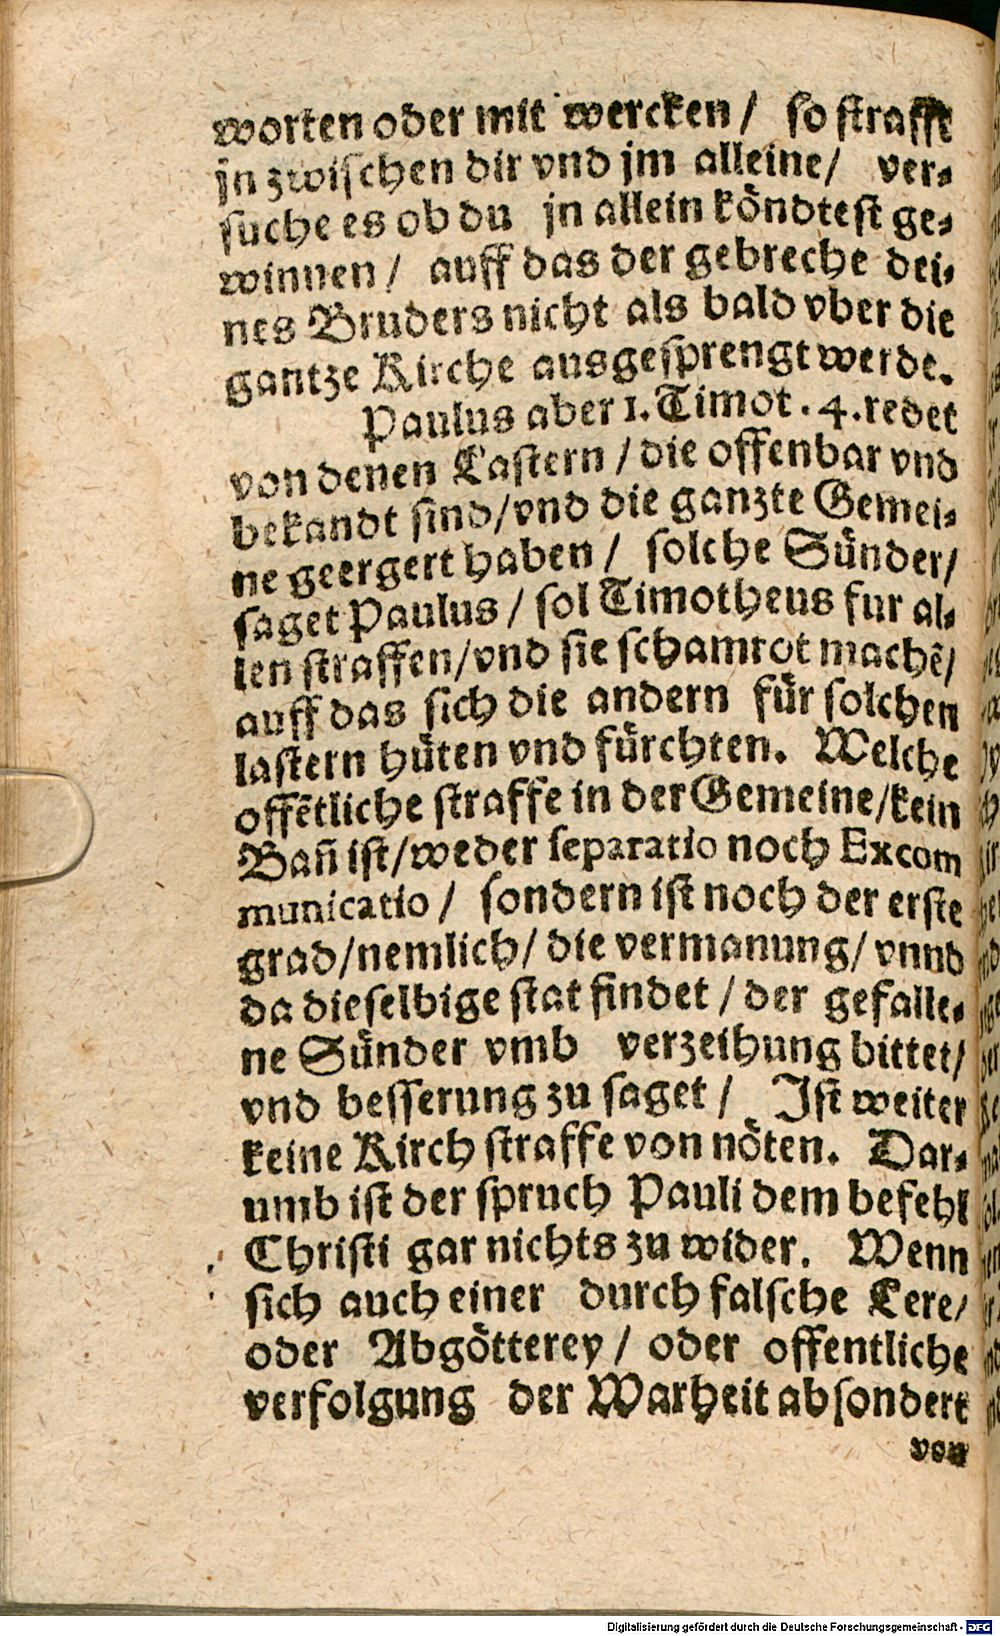 worten oder mit wercken / so strafft
jn zwischen dir vnd jm alleine / ver-
suche es ob du jn allein köndtest ge-
winnen / auff das der gebreche dei-
nes Bruders nicht als bald vber die
gantze Kirche ausgesprengt werde.
Paulus aber 1. Timot. 4. redet
von denen Lastern / die offenbar vnd
bekandt sind / vnd die ganzte Gemei-
ne geergert haben / solche Sünder /
saget Paulus / sol Timotheus fur al-
len straffen / vnd sie schamrot machẽ /
auff das sich die andern für solchen
lastern hüten vnd fürchten. Welche
offẽtliche straffe in der Gemeine / kein
Bañ ist / weder separatio noch Excom
municatio / sondern ist noch der erste
grad / nemlich / die vermanung / vnnd
da dieselbige stat findet / der gefalle-
ne Sünder vmb verzeihung bittet /
vnd besserung zu saget / Ist weiter
keine Kirch straffe von nöten. Dar-
umb ist der spruch Pauli dem befehl
Christi gar nichts zu wider. Wenn
sich auch einer durch falsche Lere /
oder Abgötterey / oder offentliche
verfolgung der Warheit absondert
von
Digitalisierung gefördert durch die Deutsche Forschungsgemeinschaft - DFG